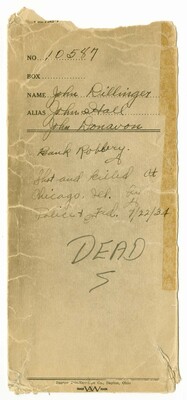 NO. 10587
BOX
NAME John Dillinger
ALIAS John Hall
John Donavon
Bank Robbery.
Shot and killed at
Chicago, Ill. by
police + Feds. 7/22/34
DEAD
S